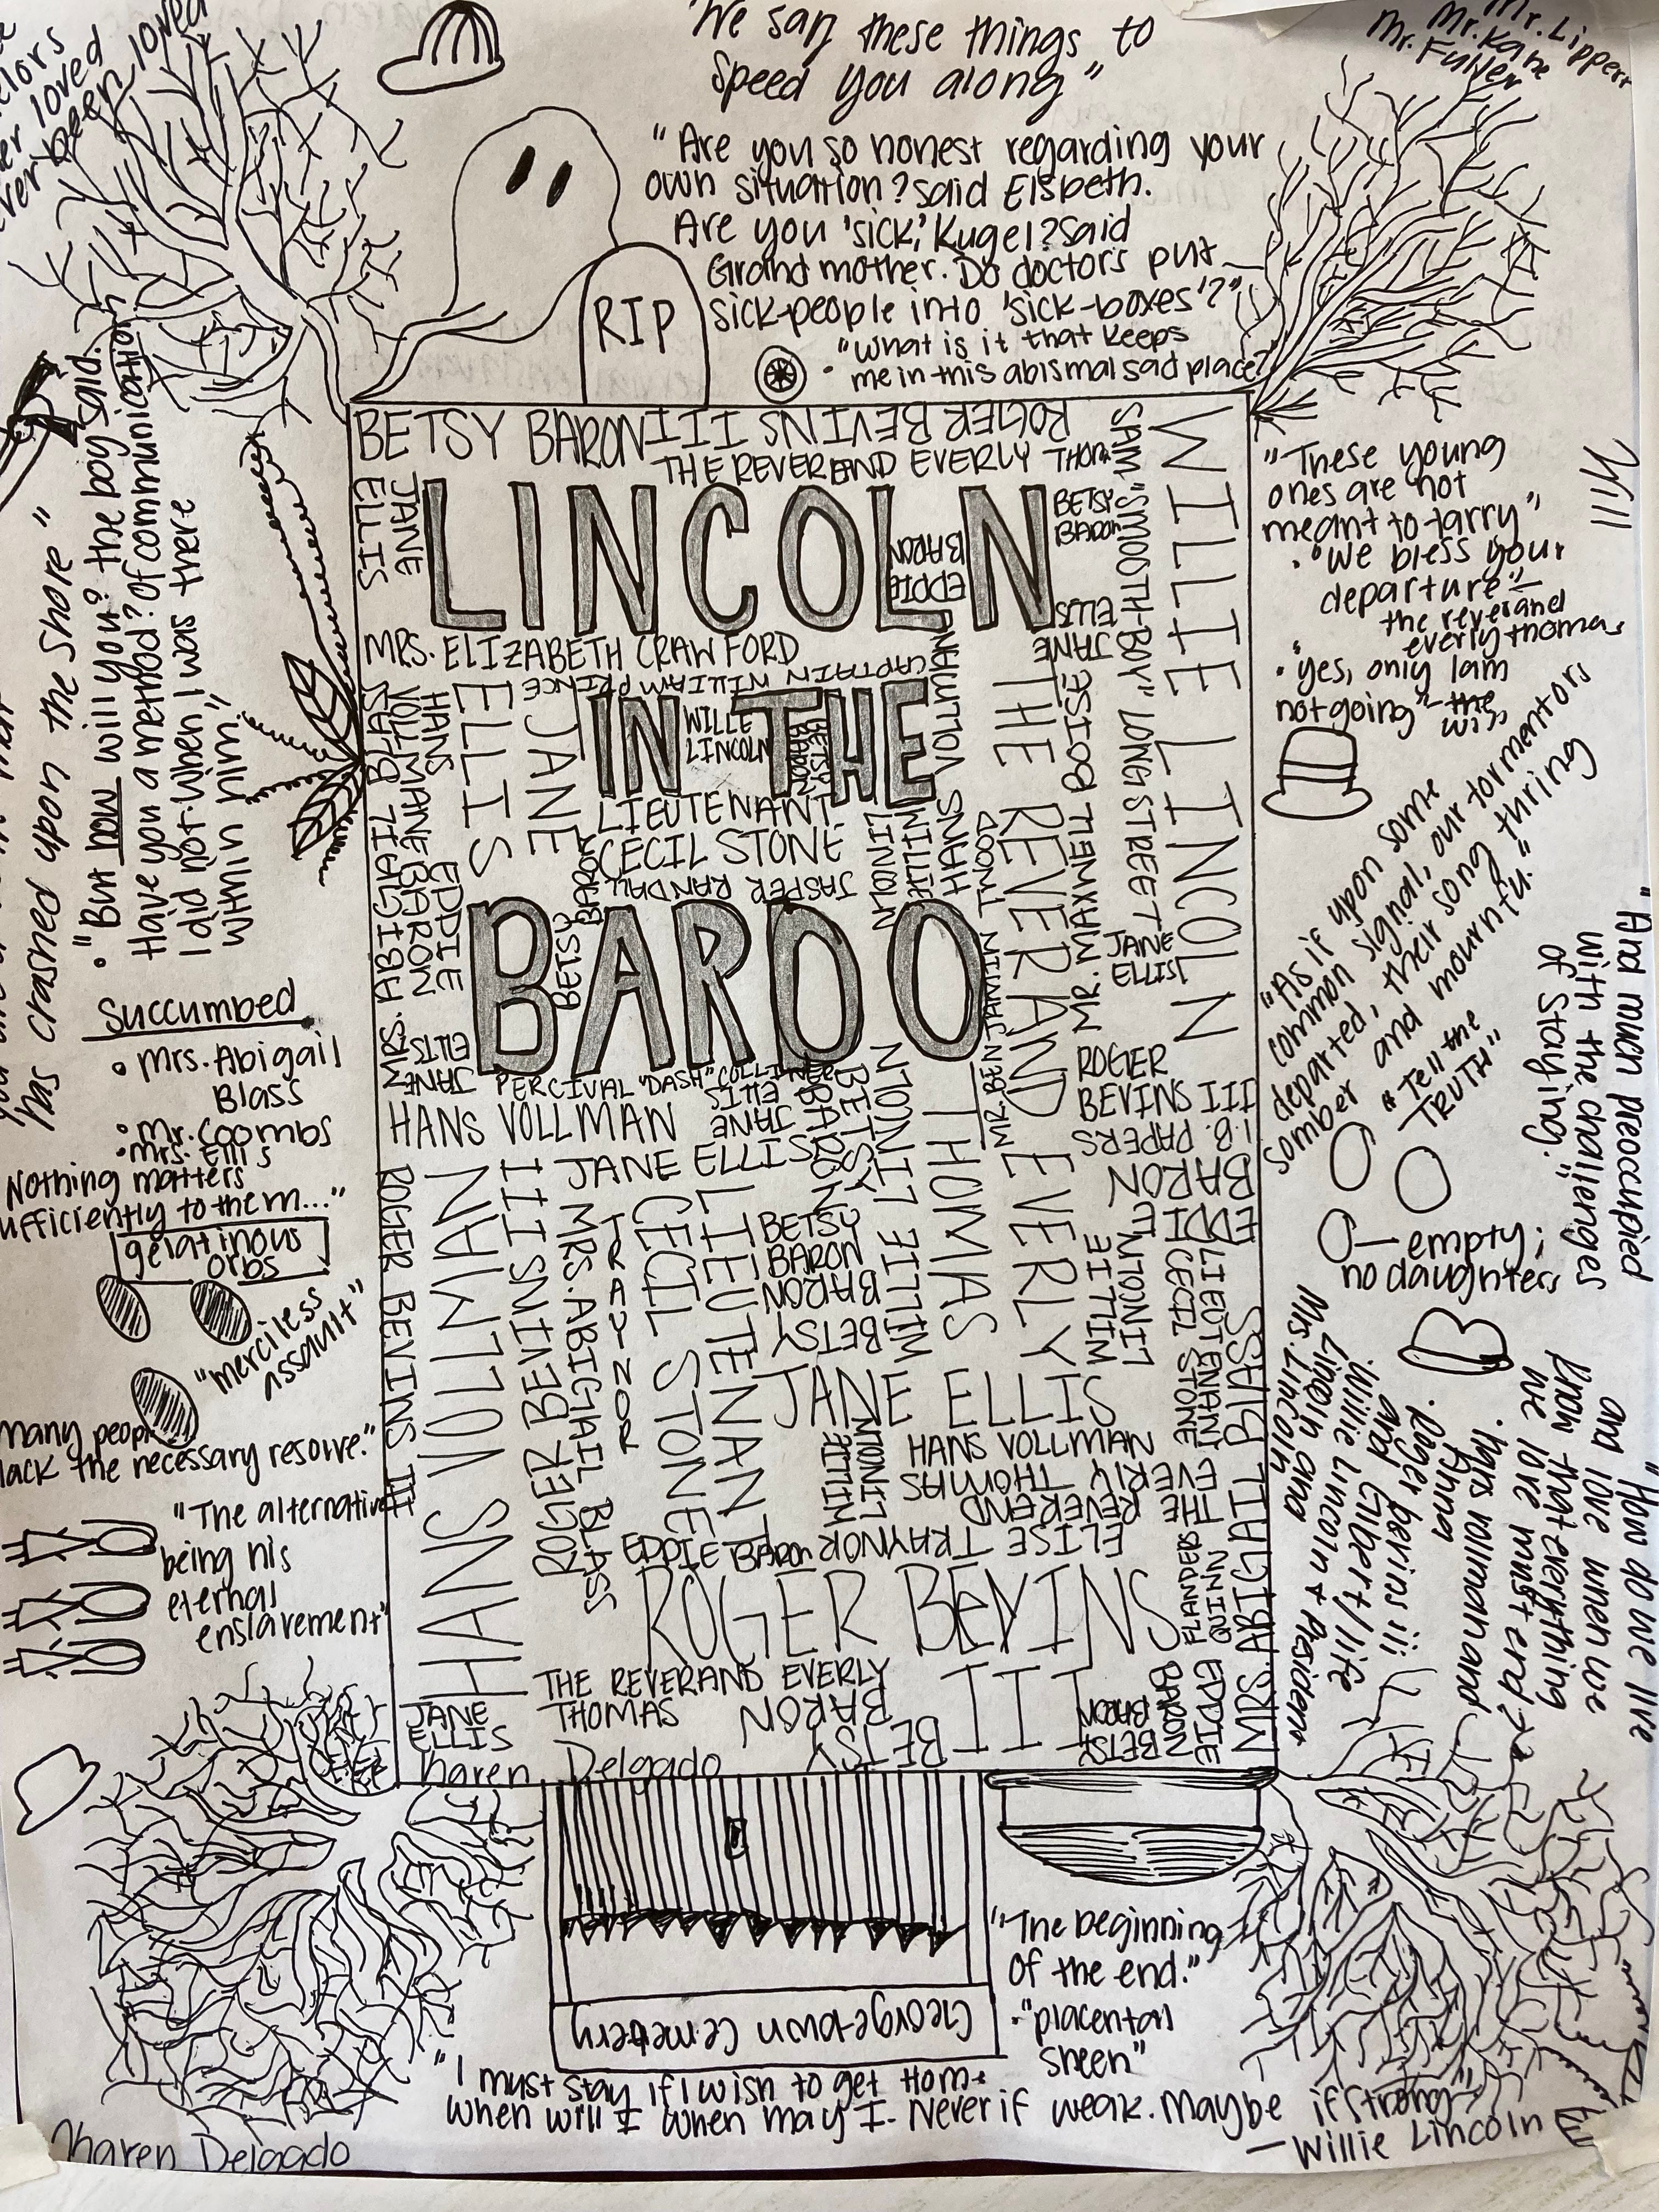 "We say these things to
speed you along"
Mr. Lippert
Mr. Kane
Mr. Fuller
elors
er loved
ver been loved
"Are you so honest regarding your
own situation? said Elsbeth.
Are you 'sick,' Kugel? said
Grandmother. Do doctors put
sick-people into 'sick-boxes'?"
• "What is it that keeps
me in this abismal sad place?
RIP
BETSY BARON
ROGER BEVINS III
THE REVEREND EVERLY THOM
SAM "SMOOTH-BOY" LONGSTREET
WILLIE LINCOLN
JANE
ELLIS
LINCOLN
BETSY
BARON
EDDIE
BARON
JANE
ELLIS
MRS. ELIZABETH CRAWFORD
CAPTAIN WILLIAM PRINCE
HANS
VOLLMAN
JANE
ELLIS
IN THE
WILLE
LINCOLN
BETSY
BARON
HANS VOLLMAN
THE REVERAND EVERLY
THOMAS
MR. MAXWELL BOISE
LIEUTENANT
CECIL STONE
JASPER RANDALL
WILLIE
LINCOLN
EDDIE
BARON
BETSY
BARON
JANE
ELLIS
BARDO
MR. BEN JANVIN TWOOD
JANE
ELLIS
PERCIVAL "DASH" COLLINER
JANE
ELLIS
ROGER
BEVINS III
I.B. PAPERS
HANS VOLLMAN
JANE ELLIS
BETSY
BARON
WILLIE LINCOLN
EDDIE
BARON
ROGER BEVINS III
HANS VOLLMAN
ROGER BEVINS III
MRS. ABIGAIL BLASS
TRAYNOR
LIEUTENANT
CECIL STONE
BETSY
BARON
BETSY
BARON
WILLIE
LINCOLN
LIEUTENANT
CECIL STONE
JANE ELLIS
WILLIE
LINCOLN
HANS VOLLMAN
THE REVEREND
EVERLY THOMAS
ELISE TRAYNOR
EDDIE BARON
ROGER BEVINS
III
FLANDERS
QUINN
MRS. ABIGAIL BLASS
THE REVERAND EVERLY
THOMAS
BETSY
BARON
BETSY
BARON
EDDIE
BARON
JANE
ELLIS
Karen Delgado
• "But how will you? the boy said.
Have you a method? of communication
I did not. When I was there
within him"
has crashed upon the shore"
Succumbed
• Mrs. Abigail
Blass
• Mr. Coombs
• Mrs. Ellis
Nothing matters
ufficiently to them..."
gelatinous
orbs
"merciless
assault"
many people
lack the necessary resolve."
"The alternative
being his
eternal
enslavement"
"These young
ones are not
meant to tarry"
• "We bless your
departure"-
the reverand
everly thomas
• "yes, only I am
not going" - the
Will
"As if upon some
common signal, our tormentors
departed, their song thring
somber and mournful."
"Tell the
TRUTH"
"And much preoccupied
with the challenges
of staying."
empty;
no daughters
"How do we live
and love when we
know that everything
we love must end?"
• hans vollman and
Anna
• Roger bevins iii
and Gilbert/life
• Willie Lincoln and
Mrs. Lincoln + President
Lincoln
George-town Cemetery
"The beginning
of the end."
• "placental
sheen"
"I must stay if I wish to get Home
when will I when may I. Never if weak. Maybe if strong"
—Willie Lincoln
Karen Delgado